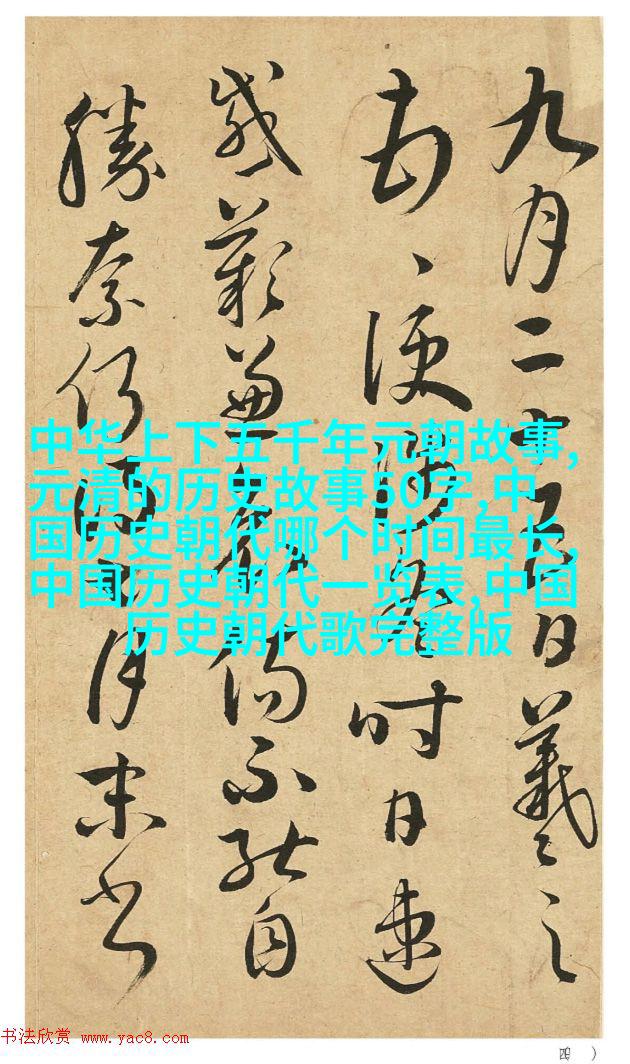 九月二十日羲之
便冬時日速
感歎兼傷不能自
勝奈何月末
中华上下五千年元朝故事,
元清的历史故事50字,中
国历史朝代哪个时间最长,
中国历史朝代一览表,中国
历史朝代歌完整版
书法欣赏 www.yac8.com
四 )